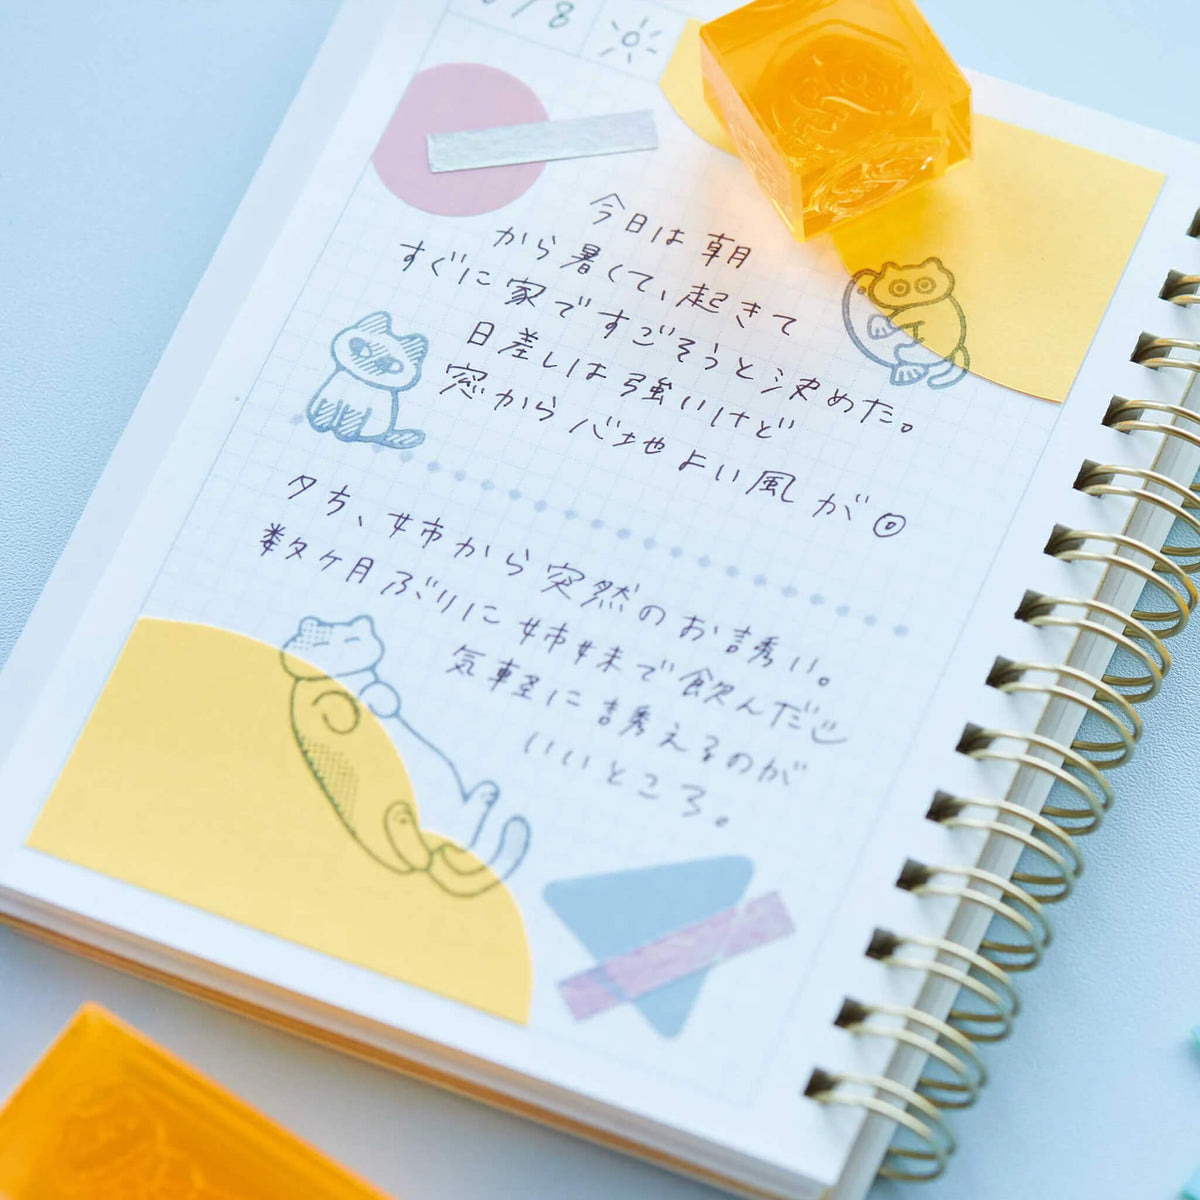 /8
今日は朝
から暑くて、起きて
すぐに家ですごそうと決めた。
日差しは強いけど
窓から心地よい風が
夕方、姉から突然のお誘い。
数ケ月ぶりに姉妹で飲んだ
気軽に誘えるのが
いいところ。